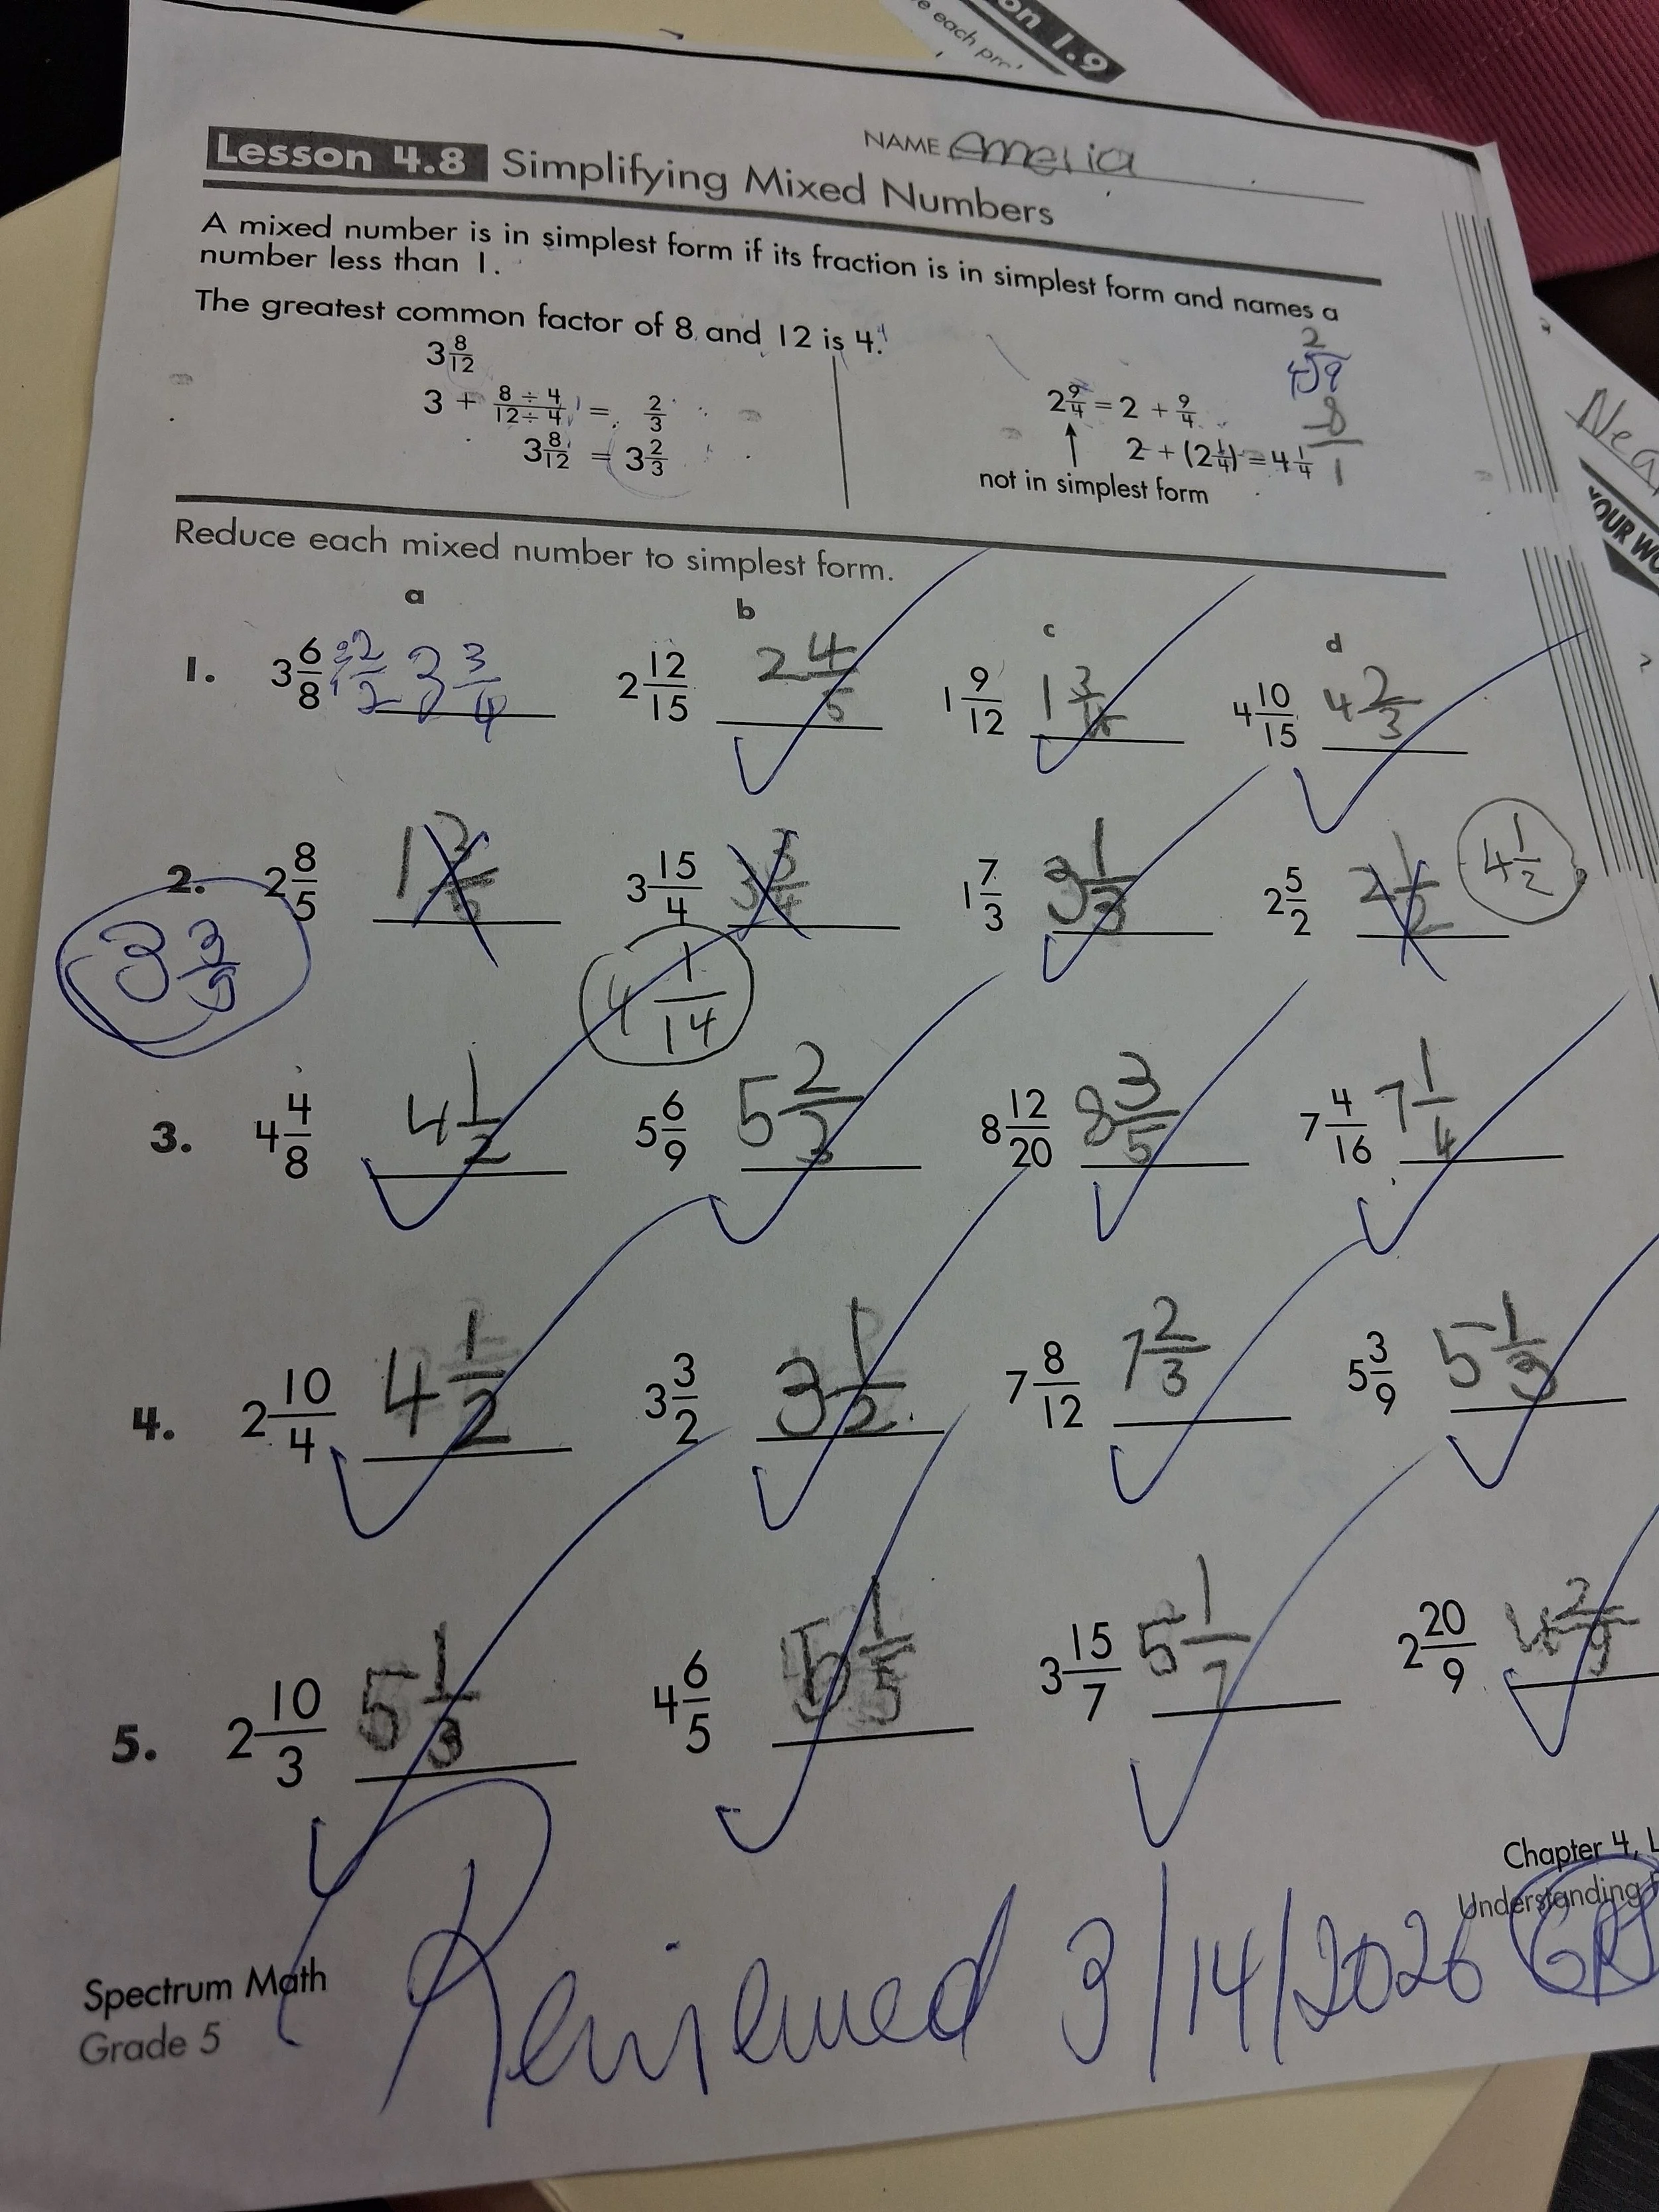 on 1.9
e each pro
Lesson 4.8 Simplifying Mixed Numbers
NAME Ameria
A mixed number is in simplest form if its fraction is in simplest form and names a
number less than 1.
The greatest common factor of 8 and 12 is 4.
3 8/12
3 + 8 ÷ 4/12 ÷ 4 = 2/3
3 8/12 = 3 2/3
2 9/4 = 2 + 9/4
2 + (2 1/4) = 4 1/4
not in simplest form
2
4 9
8
1
Nea
YOUR WO
Reduce each mixed number to simplest form.
a b c d
1. 3 6/8 3 3/4 2 12/15 2 4/5 1 9/12 1 3/ 4 10/15 4 2/3
2. 2 8/5 3 15/4 1 7/3 3 1/3 2 5/2 2 1/2 4 1/2
3 3/5 4 1/14
3. 4 4/8 4 1/2 5 6/9 5 2/3 8 12/20 8 3/5 7 4/16 7 1/4
4. 2 10/4 4 1/2 3 3/2 3 1/2 7 8/12 7 2/3 5 3/9 5 1/3
5. 2 10/3 5 1/3 4 6/5 5 1/5 3 15/7 5 1/7 2 20/9 4 2/9
Chapter 4, L
Understanding F
Spectrum Math
Grade 5
Reviewed 3/14/2026